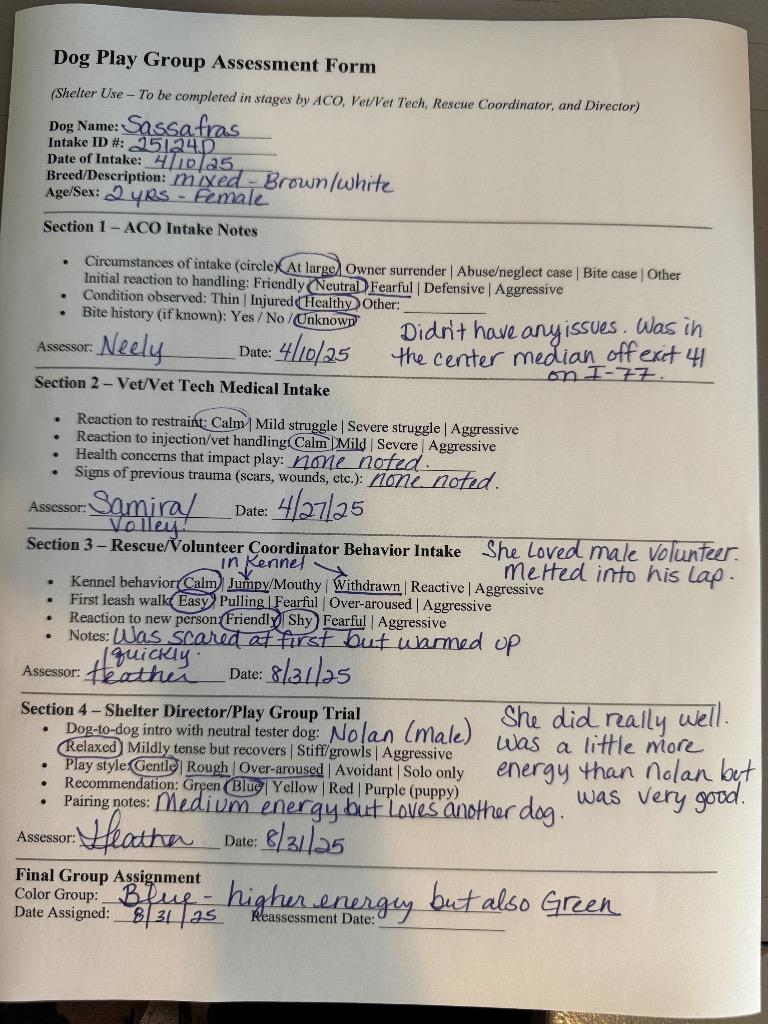 Dog Play Group Assessment Form
(Shelter Use – To be completed in stages by ACO, Vet/Vet Tech, Rescue Coordinator, and Director)
Dog Name: Sassafras
Intake ID #: 25124D
Date of Intake: 4/10/25
Breed/Description: mixed - Brown/white
Age/Sex: 2 yrs - Female
Section 1 – ACO Intake Notes
• Circumstances of intake (circle): At large | Owner surrender | Abuse/neglect case | Bite case | Other
Initial reaction to handling: Friendly | Neutral | Fearful | Defensive | Aggressive
• Condition observed: Thin | Injured | Healthy | Other:
• Bite history (if known): Yes / No / Unknown
Didn't have any issues. Was in
the center median off exit 41
on I-77.
Assessor: Neely Date: 4/10/25
Section 2 – Vet/Vet Tech Medical Intake
• Reaction to restraint: Calm | Mild struggle | Severe struggle | Aggressive
• Reaction to injection/vet handling: Calm | Mild | Severe | Aggressive
• Health concerns that impact play: none noted.
• Signs of previous trauma (scars, wounds, etc.): none noted.
Assessor: Samira/ Date: 4/27/25
Volley!
Section 3 – Rescue/Volunteer Coordinator Behavior Intake
She Loved male volunteer.
Melted into his lap.
in Kennel
• Kennel behavior: Calm | Jumpy/Mouthy | Withdrawn | Reactive | Aggressive
• First leash walk: Easy | Pulling | Fearful | Over-aroused | Aggressive
• Reaction to new person: Friendly | Shy | Fearful | Aggressive
• Notes: Was scared at first but warmed up
quickly.
Assessor: Heather Date: 8/31/25
Section 4 – Shelter Director/Play Group Trial
• Dog-to-dog intro with neutral tester dog: Nolan (male)
Relaxed | Mildly tense but recovers | Stiff/growls | Aggressive
• Play style: Gentle | Rough | Over-aroused | Avoidant | Solo only
• Recommendation: Green | Blue | Yellow | Red | Purple (puppy)
• Pairing notes: Medium energy but Loves another dog.
She did really well.
Was a little more
energy than Nolan but
was very good.
Assessor: Heather Date: 8/31/25
Final Group Assignment
Color Group: Blue - higher energy but also Green
Date Assigned: 8/31/25 Reassessment Date: